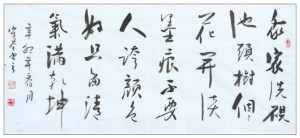 我家洗硯
池頭樹個個
花開淡
墨痕不要
人誇顏色
好只留清
氣滿乾坤
辛卯年春月